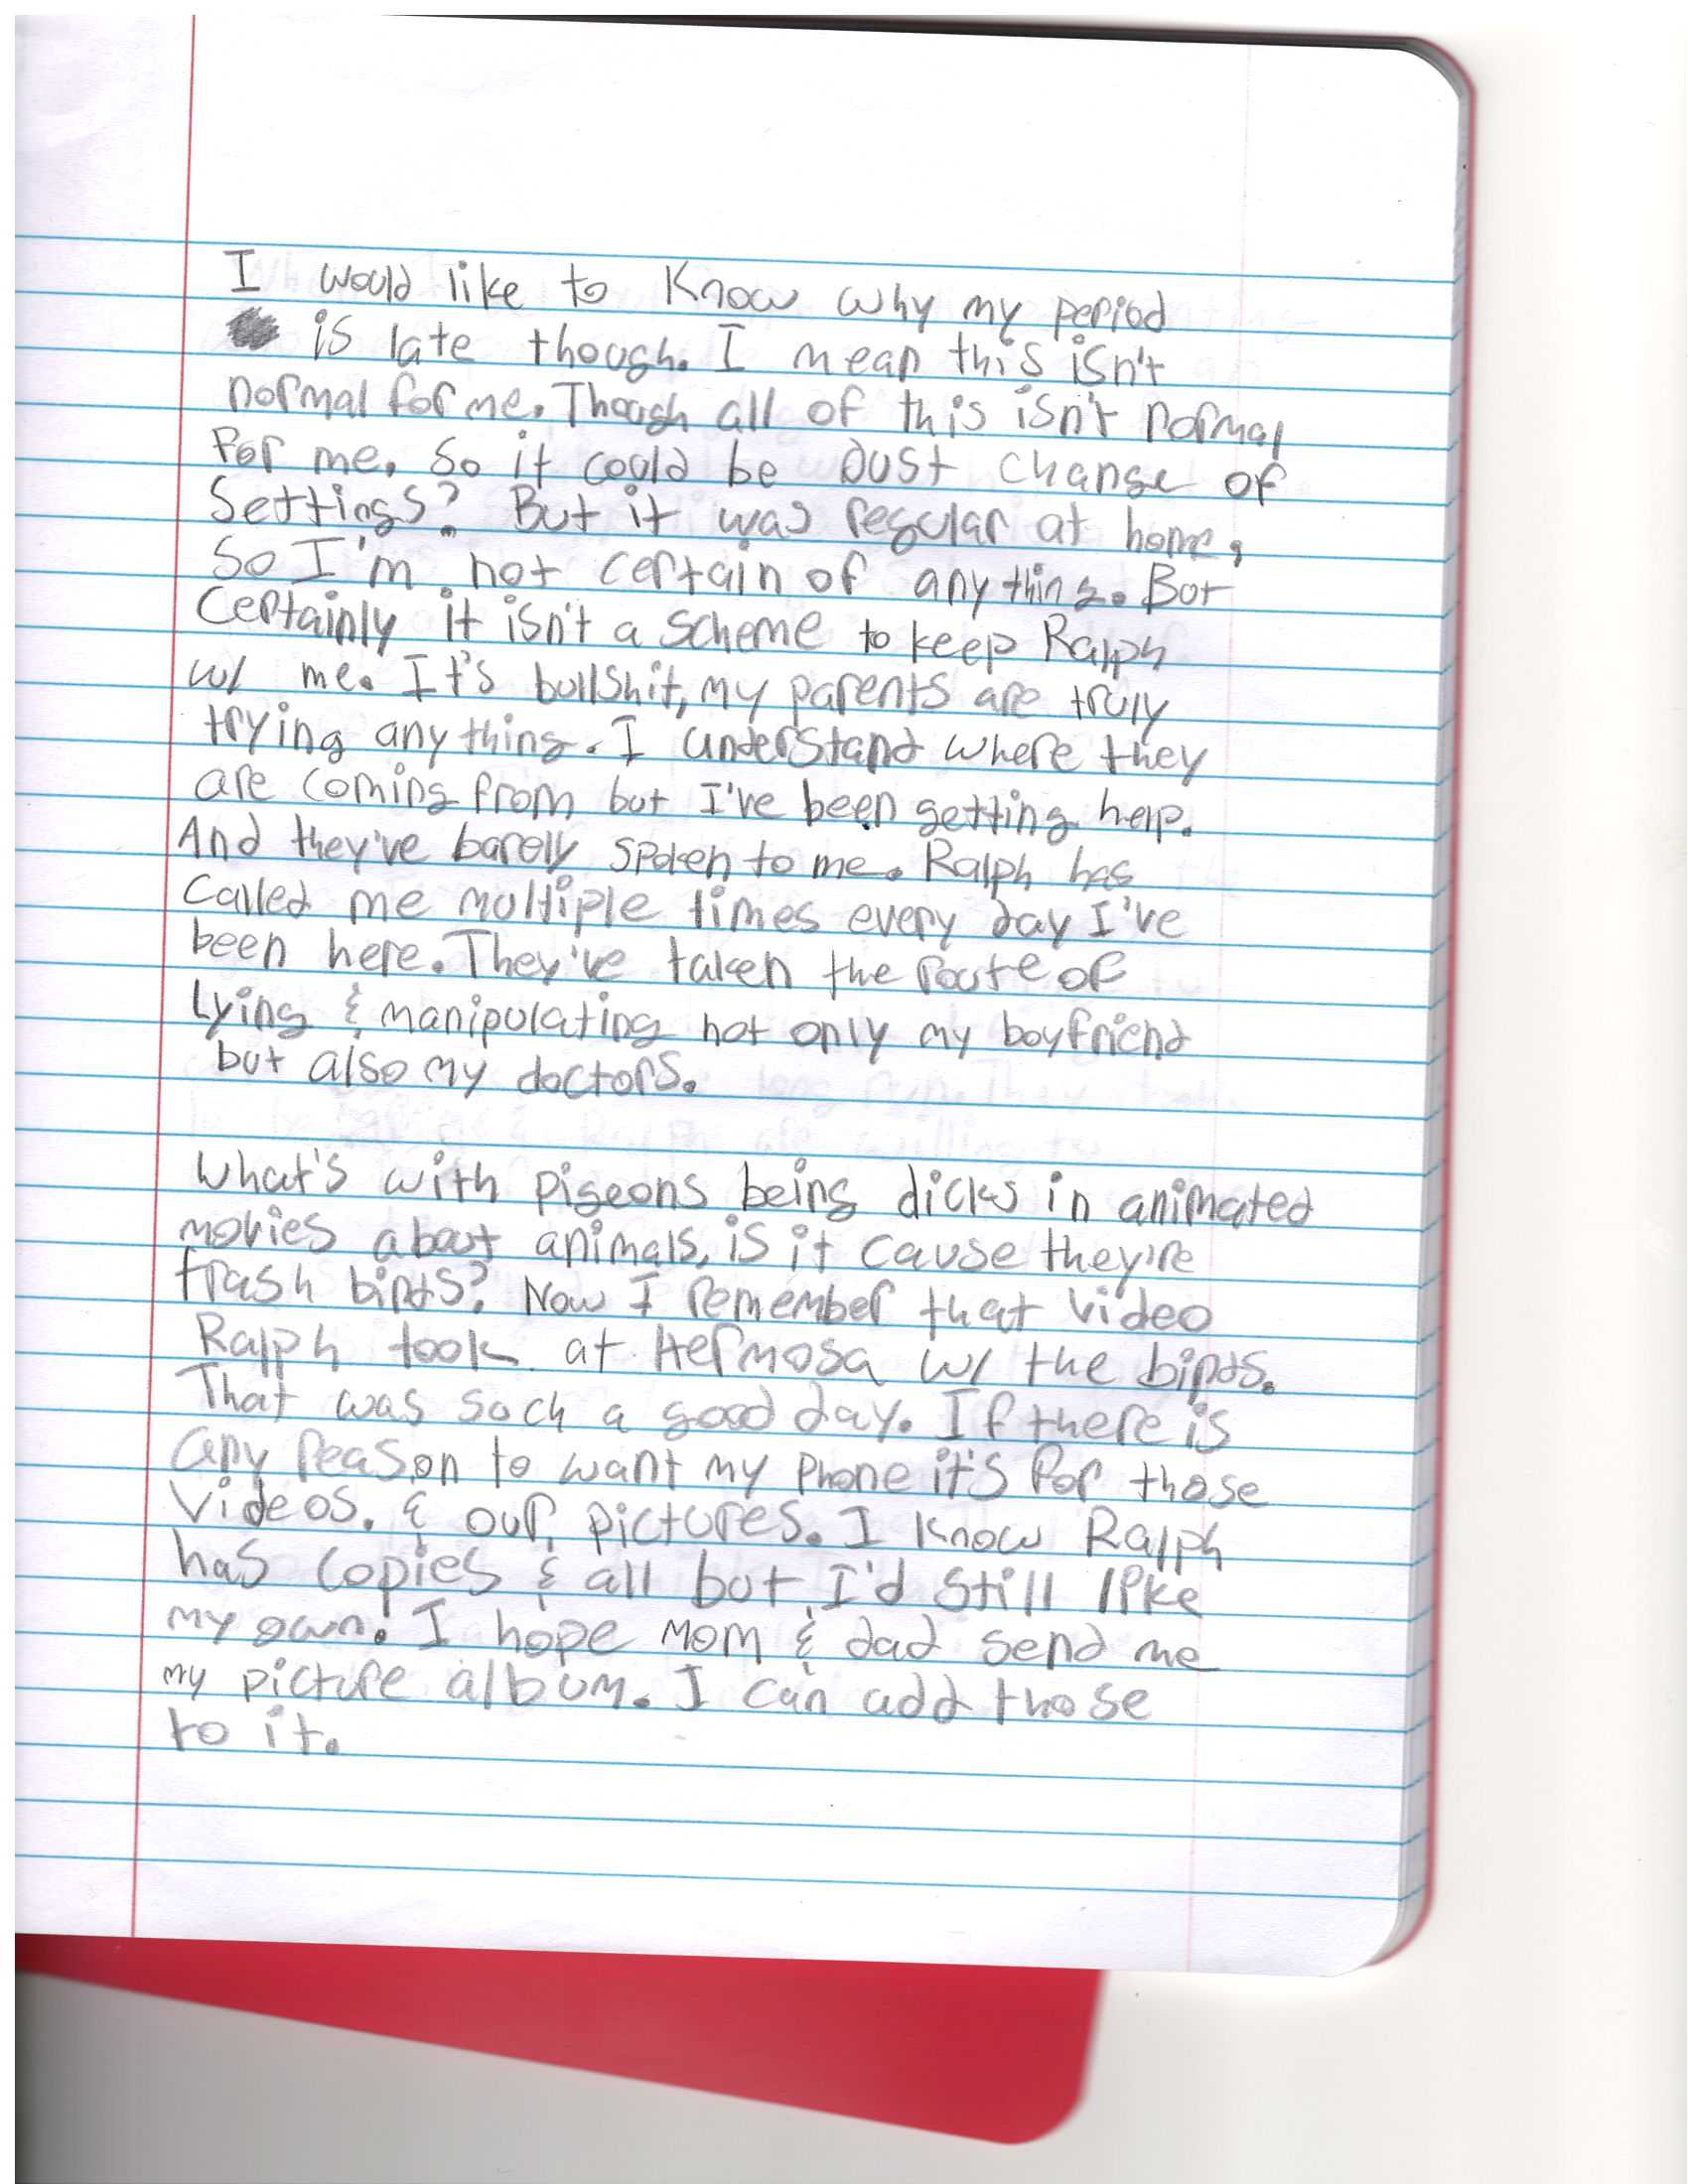 I would like to know why my period
is late though. I mean this isn't
normal for me. Though all of this isn't normal
for me. So it could be Just change of
Settings? But it was regular at home,
So I'm not certain of anything. But
Certainly it isn't a scheme to keep Ralph
w/ me. It's bullshit, my parents are truly
trying anything. I understand where they
are coming from but I've been getting help.
And they've barely spoken to me. Ralph has
Called me multiple times every day I've
been here. They've taken the route of
Lying & manipulating not only my boyfriend
but also my doctors.
What's with pigeons being dicks in animated
movies about animals, is it cause they're
trash birds? Now I remember that video
Ralph took at Hermosa w/ the birds.
That was such a good day. If there is
any reason to want my phone it's for those
Videos. & our pictures. I know Ralph
has copies & all but I'd still like
my own. I hope Mom & dad send me
my picture album. I can add those
to it.